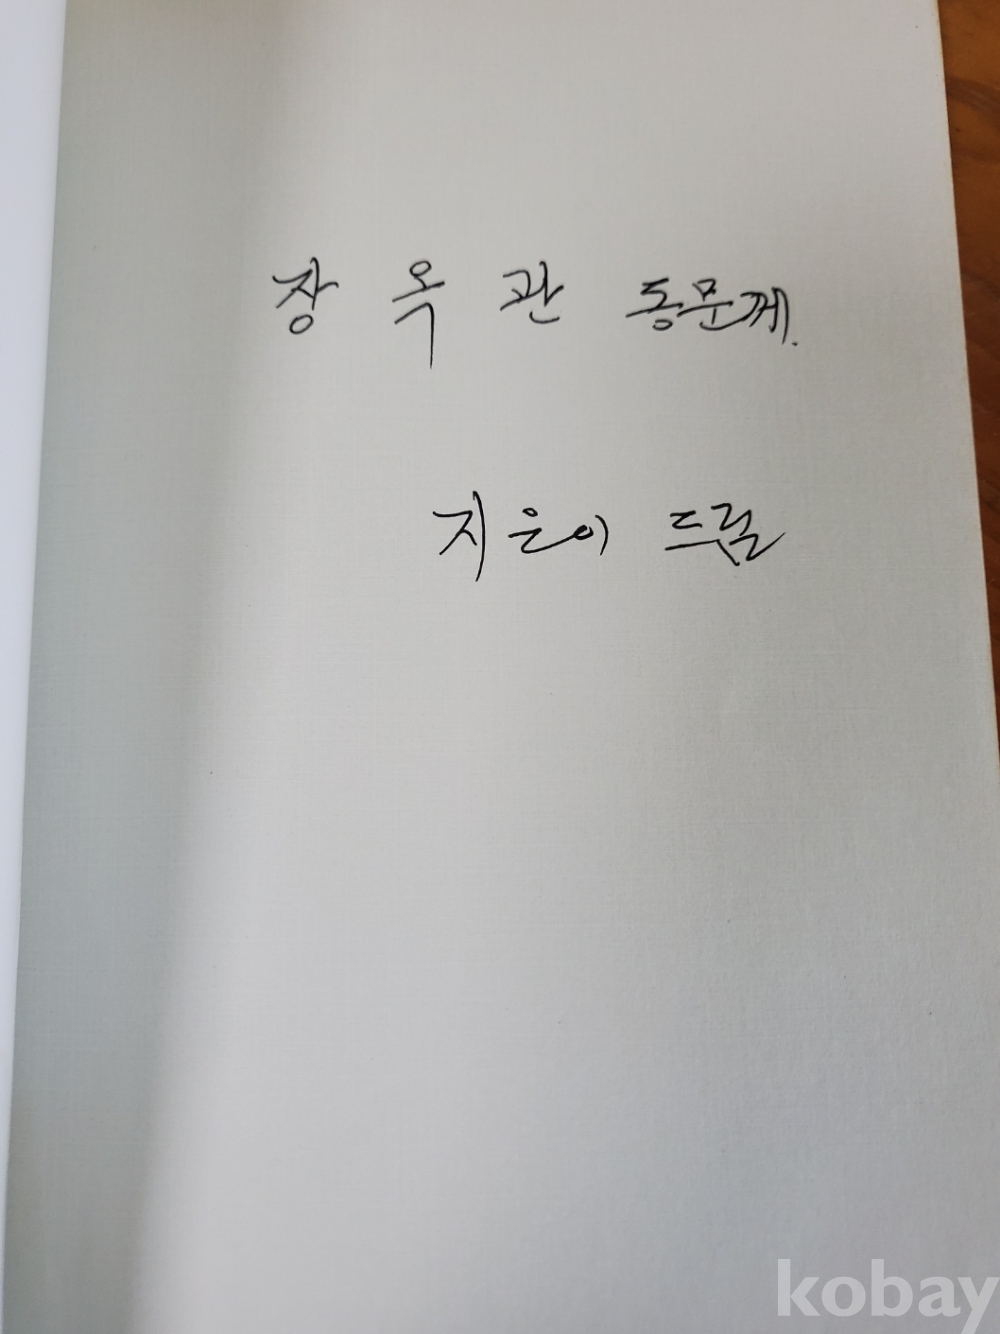 장 옥 관 동문께.
지은이 드림
kobay